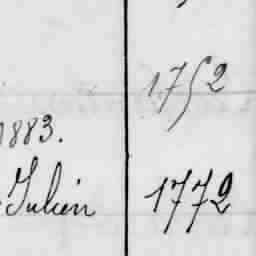 1752
1883.
Julien 1772